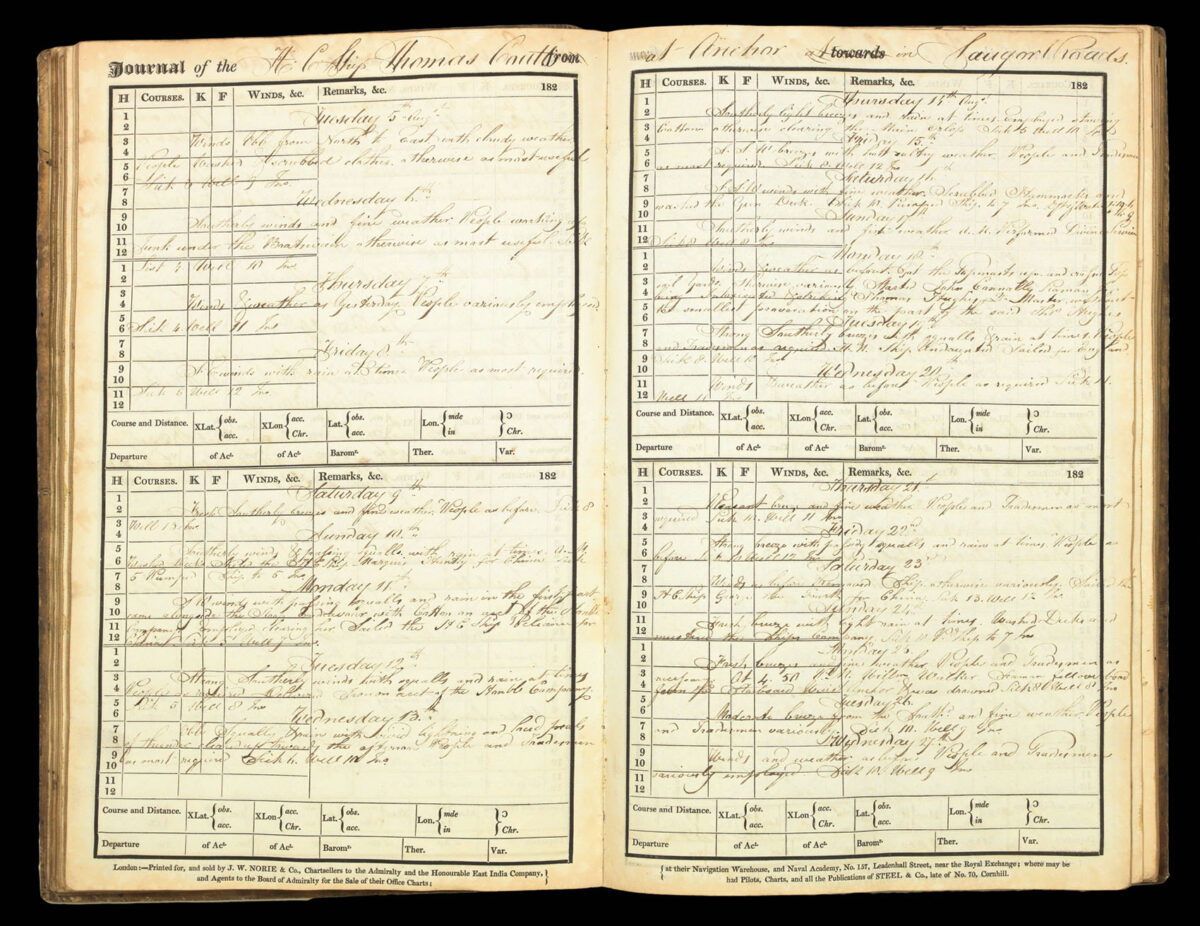 Journal of the H C Ship Thomas Coutts from
H COURSES. K F WINDS, &c. Remarks, &c. 182
Tuesday 5th Augst
Winds from North to East with cloudy weather
People washed & scrubbed clothes otherwise as most useful
Sick Well 9 Ins
Wednesday 6th
Southerly winds and fine weather People working up
junk under the otherwise as most useful Sick
List 4 Well 10 Ins
Thursday 7th
Winds & weather as Yesterday People variously employed
Sick 4 Well 11 Ins
Friday 8th
winds with rain at times People as most required
Sick 6 Well 12 Ins
Course and Distance. XLat. { obs. acc. XLon { acc. Chr. Lat. { obs. acc. Lon. { mde in } Ɔ Chr.
Departure of Act. of Act. Baromr. Ther. Var.
H COURSES. K F WINDS, &c. Remarks, &c. 182
Saturday 9th
Fresh Southerly breezes and fine weather People as before Sick 8
Well 13 Ins
Sunday 10th
Southerly winds & passing squalls with rain at times
Washed Decks the Ship Marquis Huntly for China Sick
5 Pumped Ship to 5 Ins
Monday 11th
winds with passing squalls and rain in the first part
came alongside the Sloop with Cotton on acct of the Honble
Company employed clearing her Sailed the H C Ship for
China Sick 5 Well 9 Ins
Tuesday 12th
Strong Southerly winds with squalls and rain at times
People on acct of the Honble Company
Sick 5 Well 8 Ins
Wednesday 13th
Squally & rain with vivid lightning and loud peals
of thunder towards the afternn People and Tradesmen
as most required Sick 6 Well 10 Ins
Course and Distance. XLat. { obs. acc. XLon { acc. Chr. Lat. { obs. acc. Lon. { mde in } Ɔ Chr.
Departure of Act. of Act. Baromr. Ther. Var.
London:—Printed for, and sold by J. W. NORIE & Co., Chartsellers to the Admiralty and the Honourable East India Company,
and Agents to the Board of Admiralty for the Sale of their Office Charts;
at Anchor at towards in Saugor Roads.
H COURSES. K F WINDS, &c. Remarks, &c. 182
Thursday 14th Augt
Southerly light breezes and rain at times Employed stowing
Cotton otherwise clearing the Main Orlop Sick 6 Well 10 Ins
Friday 15th
S S W breezes with weather People and Tradesmen
as most required Sick Well 12 In
Saturday 16
S S W winds with fine weather Scrubbed Hammocks and
washed the Gun Deck Sick Pumped Ship to 7 Ins
Sunday 17th
Southerly winds and fine weather A.M. Performed Divine Service
Sick 8 Well 8 Ins
Monday 18th
Winds & weather as Got the Topmasts up and crossed Top
sail Yards otherwise variously John Connolly Seaman for
Thomas Hughes 2nd Master without
the smallest provocation on the part of the said Thos Hughes
Tuesday 19th
Strong Southerly breezes with squalls & rain at times People
and Tradesmen as required H.M. Ship Undaunted Sailed for England
Sick 8 Well 10 Ins
Wednesday 20
Winds & weather as before People as required Sick 11
Well 11 Ins
Course and Distance. XLat. { obs. acc. XLon { acc. Chr. Lat. { obs. acc. Lon. { mde in } Ɔ Chr.
Departure of Act. of Act. Baromr. Ther. Var.
H COURSES. K F WINDS, &c. Remarks, &c. 182
Thursday 21st
Pleasant breeze and fine weather People and Tradesmen as most
required Sick 10 Well 11 Ins
Friday 22nd
Strong breeze with squalls and rain at times People as
before Well 12 Ins
Saturday 23rd
Winds as before Ship otherwise variously Sailed the
H C Ship George the Fourth for China Sick 13 Well 12 Ins
Sunday 24
Fresh breeze with light rain at times Washed Decks and
mustered the Ships Company Sick 10 Pd Ship to 7 Ins
Monday 25
Fresh breezes and fine weather People and Tradesmen as
necessary At 4.30 P.M. William Walker Seaman fell overboard
from the Starboard Anchor & was drowned Sick 8 Well 8 Ins
Tuesday 26
Moderate breeze from the South and fine weather People
and Tradesmen variously Sick 10 Well 9 Ins
Wednesday 27th
Winds and weather as before People and Tradesmen
variously employed Sick 10 Well 9 Ins
Course and Distance. XLat. { obs. acc. XLon { acc. Chr. Lat. { obs. acc. Lon. { mde in } Ɔ Chr.
Departure of Act. of Act. Baromr. Ther. Var.
at their Navigation Warehouse, and Naval Academy, No. 157, Leadenhall Street, near the Royal Exchange; where may be
had Pilots, Charts, and all the Publications of STEEL & Co., late of No. 70, Cornhill.